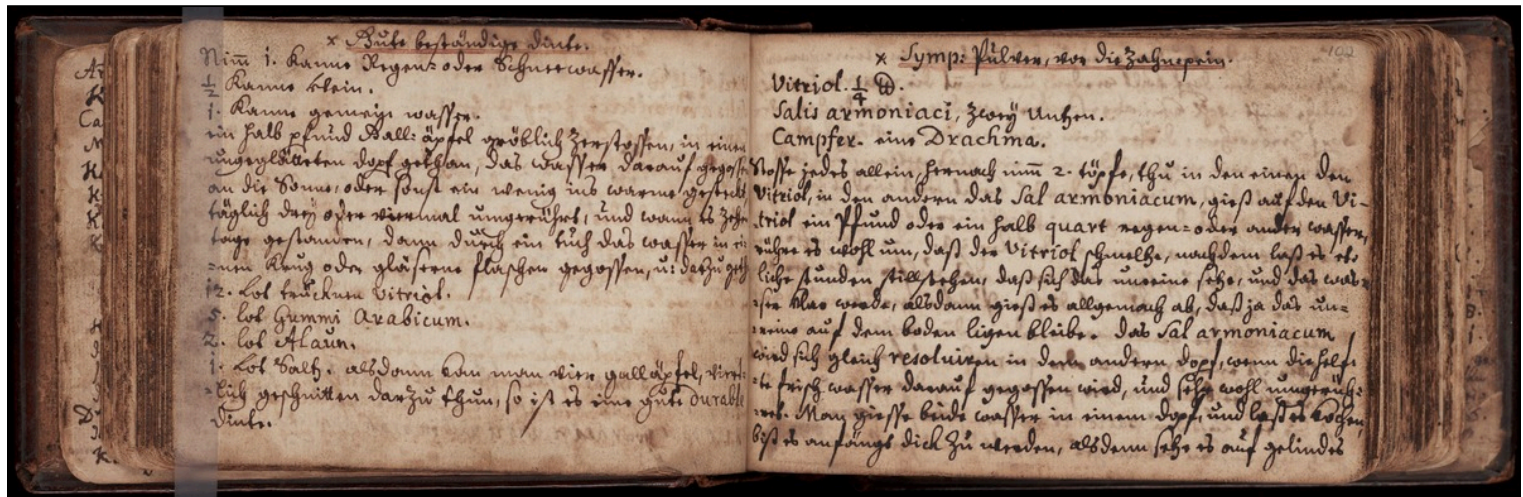 × Gute beständige Dinte.
Nim̄ 1. Kanne Regen= oder Schneewasser.
½ Kanne Wein.
1. Kanne gemein wasser.
ein halb pfund Gall: äpfel gröblich zerstossen, in einen
ungeglätteten dopf gethan, das wasser darauf gegossen
an die Sonne, oder sonst ein wenig ins warme gesteckt,
täglich drey oder viermal umgerührt, und wann es zehn
tage gestanden, dann durch ein tuch das wasser in ei
=nen Krug oder gläserne flaschen gegossen, u: darzu geth
12. Lot trucknen Vitriol.
5. Lot Gummi Arabicum.
2. Lot Alaun.
1. Lot Saltz. alsdann kan man vier galläpfel,
=lich geschnitten darzu thun, so ist es eine gute durable
Dinte.
102
× Symp: Pulver, vor die Zahnpein.
Vitriol. ¼ ℔.
Salis armoniaci, zwey Untzen.
Campfer. eine Drachma.
Stosse jedes allein, hernach nim̄ 2. töpfe, thu in den einen den
Vitriol, in den andern das Sal armoniacum, gieß auf den Vi-
triol ein Pfund oder ein halb quart regen= oder ander wasser,
rühre es wohl um, daß der Vitriol schmeltze, nachdem laß es et=
liche stunden stillstehen, daß sich das unreine setze, und das was=
=ser klar werde, alsdann gieß es allgemach ab, daß ja das un=
=reine auf dem boden ligen bleibe. das Sal armoniacum
wird sich gleich resolviren in dem andern dopf, wenn die helf=
=te frisch wasser darauf gegossen wird, und sehr wohl umgerüh=
=ret. Man giesse beide wasser in einem dopf, und laß es kochen,
biß es anfängt dick zu werden, alsdenn setze es auf gelindes